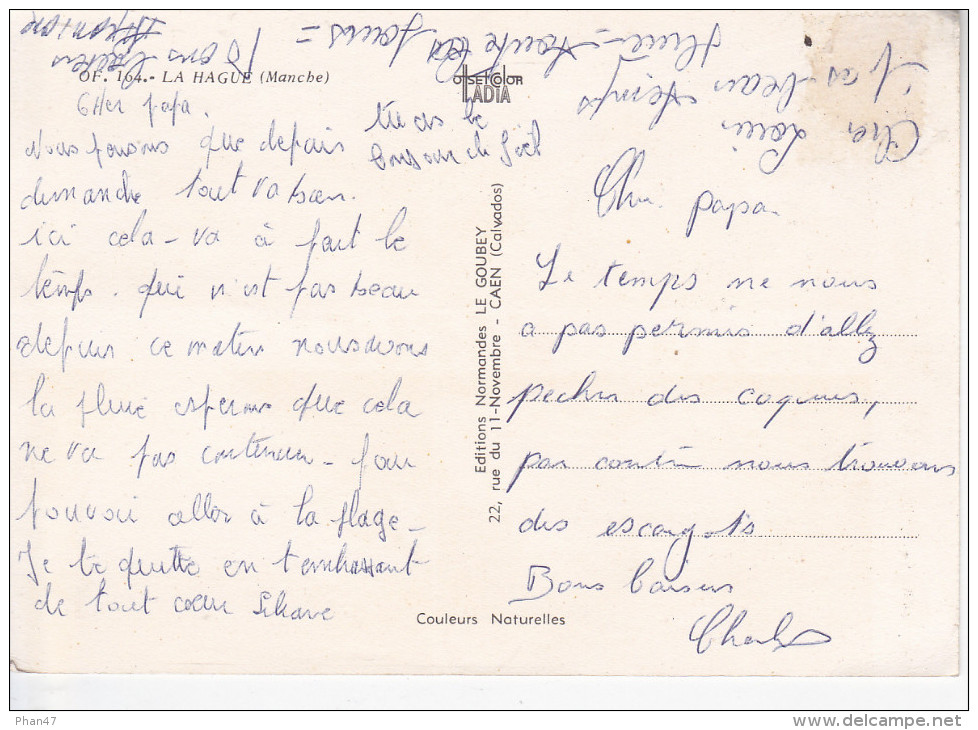 OF. 164.- LA HAGUE (Manche)
OFFSETCOLOR
IADIA
Cher papa.
Nous pensons que depuis
dimanche tout va bien.
ici cela-va à part le
temps. qui n'est pas beau
depuis ce matin nous avons
la pluie esperons que cela
ne va pas continuer - pour
pouvoir aller à la plage-
Je te quitte en t'embrassant
de tout coeur
tu as le
bonjour de Joël
Cher Louis
beau temps
pluie - toute les jours =
Bons baisers
Editions Normandes LE GOUBEY
22, rue du 11-Novembre - CAEN (Calvados)
Cher papa
Le temps ne nous
a pas permis d'allez
pecher des coques,
par contre nous trouvons
des escargots
Bons baisers
Charles
Couleurs Naturelles
Phan47
www.delcampe.net